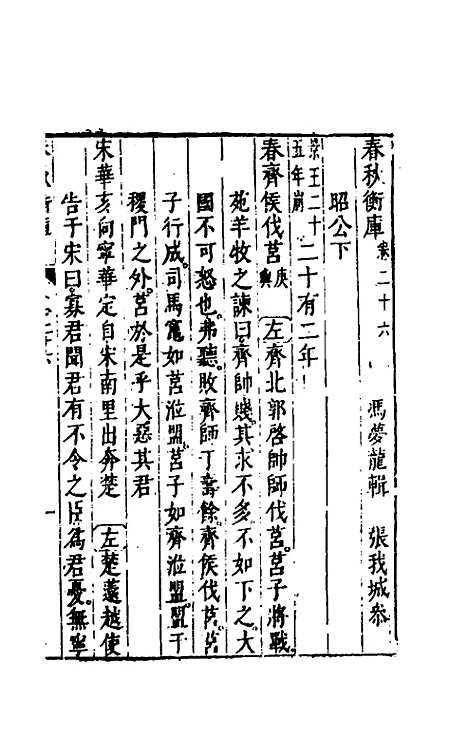 春秋衡庫卷二十六 馮夢龍輯 張我城叅
昭公下
景王二十五年崩 二十有二年
春齊侯伐莒庚輿 左齊北郭啓帥師伐莒莒子將戰
苑羊牧之諫曰齊帥賤其求不多不如下之大
國不可怒也弗聽敗齊師于壽餘齊侯伐莒莒
子行成司馬竈如莒涖盟莒子如齊涖盟盟于
稷門之外莒於是乎大惡其君
宋華亥向寧華定自宋南里出奔楚 左楚薳越使
告于宋曰寡君聞君有不令之臣爲君憂無寧